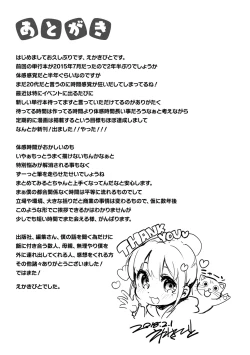 あとがき
はじめましてお久しぶりです、えかきびとです。
前回の単行本が2015年7月だったので2年半ぶりでしょうか
体感感覚だと半年ぐらいなのですが
まだ20代だと言うのに時間感覚が狂いだしてしまってるね！
最近は特にイベントに出るたびに
新しい単行本待ってますと言っていただけてるのがありがたく
待ってる時間は待ってる時間より体感時間長い事だろうなぁと考えながら
定期的に漫画は掲載するという目標もほぼ達成しまして
なんとか新刊！出ました！！やった！！！
体感時間がおかしいのも
いやぁもっとうまく描けないもんかなぁと
特別悩みが解消される事もなく
ずーっと筆を走らせていたいでしょうね
まとめてみるとちゃんと上手くなってんだなと安心します。
まぁ僕の都合関係なく時間は平等に流れるものでして
立場や環境、大きな括りだと商業の事情は変わるもので、仮に数年後
このような形でご挨拶できるかはわかりませんが
少しでも短い時間でまた会える日を、がんばります。
出版社、編集さん、僕の話を聞く為だけに
飯に付き合う数人、母親、無理やり僕を
外に連れ出してくれる人、感想をくれる方
その他諸々ありがとうございました！
ではまた！
えかきびとでした。
THANK
YOU
2018.2.1
えかきびと